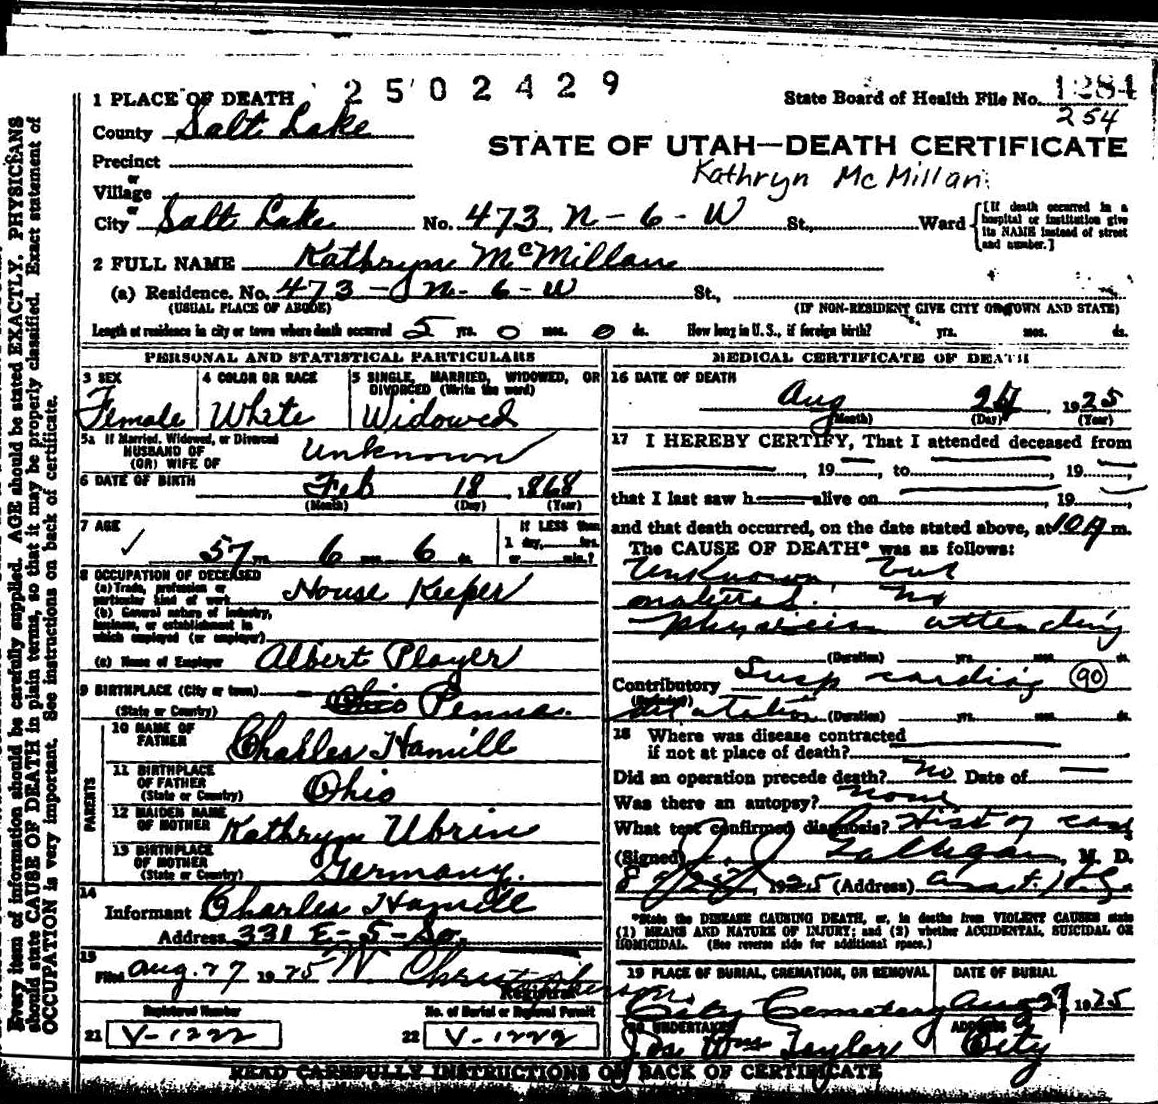 2502429
1 PLACE OF DEATH
State Board of Health File No. 1284
254
County Salt Lake
STATE OF UTAH—DEATH CERTIFICATE
Precinct
Kathryn McMillan
or
Village
or
City Salt Lake No. 473 N-6-W St., Ward [If death occurred in a hospital or institution give its NAME instead of street and number.]
2 FULL NAME Kathryn McMillan
(a) Residence. No. 473 - N-6-W St.,
(USUAL PLACE OF ABODE) (IF NON-RESIDENT GIVE CITY OR TOWN AND STATE)
Length of residence in city or town where death occurred 5 yrs. 0 mos. 0 ds. How long in U.S., if foreign birth? yrs. mos. ds.
PERSONAL AND STATISTICAL PARTICULARS
3 SEX
Female
4 COLOR OR RACE
White
5 SINGLE, MARRIED, WIDOWED, OR
DIVORCED (Write the word)
Widowed
5a If Married, Widowed, or Divorced
HUSBAND OF
(OR) WIFE OF
Unknown
6 DATE OF BIRTH Feb 18, 1868
(Month) (Day) (Year)
7 AGE
57 yrs. 6 mos. 6 ds.
If LESS than
1 day, hrs.
or min.?
8 OCCUPATION OF DECEASED
(a) Trade, profession or
particular kind of work House Keeper
(b) General nature of industry,
business, or establishment in
which employed (or employer)
(c) Name of Employer Albert Player
9 BIRTHPLACE (City or town)
(State or Country) Ohio Penna.
PARENTS
10 NAME OF
FATHER Charles Hamill
11 BIRTHPLACE
OF FATHER
(State or Country) Ohio
12 MAIDEN NAME
OF MOTHER Kathryn Ubrin
13 BIRTHPLACE
OF MOTHER
(State or Country) Germany.
14
Informant Charles Hamill
Address 331 E-5-So.
15
Filed Aug. 27 1925 W Christopherson.
Registrar
Registered Number
21 V-1222
No. of Burial or Removal Permit
22 V-1222
MEDICAL CERTIFICATE OF DEATH
16 DATE OF DEATH
Aug 24, 1925
(Month) (Day) (Year)
17 I HEREBY CERTIFY, That I attended deceased from
, 19 , to , 19 ,
that I last saw h alive on , 19
and that death occurred, on the date stated above, at 10 A m.
The CAUSE OF DEATH* was as follows:
Unknown, but
natural. No
physician attending
(Duration) yrs. mos. ds.
Contributory Susp cardiac 90
dilatation (Duration) yrs. mos. ds.
18 Where was disease contracted
if not at place of death?
Did an operation precede death? No Date of
Was there an autopsy? none
What test confirmed diagnosis? Hist of case
(Signed) J. J. Galligan, M. D.
1925 (Address)
*State the DISEASE CAUSING DEATH, or, in deaths from VIOLENT CAUSES state
(1) MEANS AND NATURE OF INJURY; and (2) whether ACCIDENTAL, SUICIDAL OR
HOMICIDAL. (See reverse side for additional space.)
19 PLACE OF BURIAL, CREMATION, OR REMOVAL
City Cemetery
DATE OF BURIAL
Aug 27 1925
20 UNDERTAKER
Jos Wm Taylor
ADDRESS
City
READ CAREFULLY INSTRUCTIONS ON BACK OF CERTIFICATE
Every item of information should be carefully supplied. AGE should be stated EXACTLY. PHYSICIANS
should state CAUSE OF DEATH in plain terms, so that it may be properly classified. Exact statement of
OCCUPATION is very important. See instructions on back of certificate.